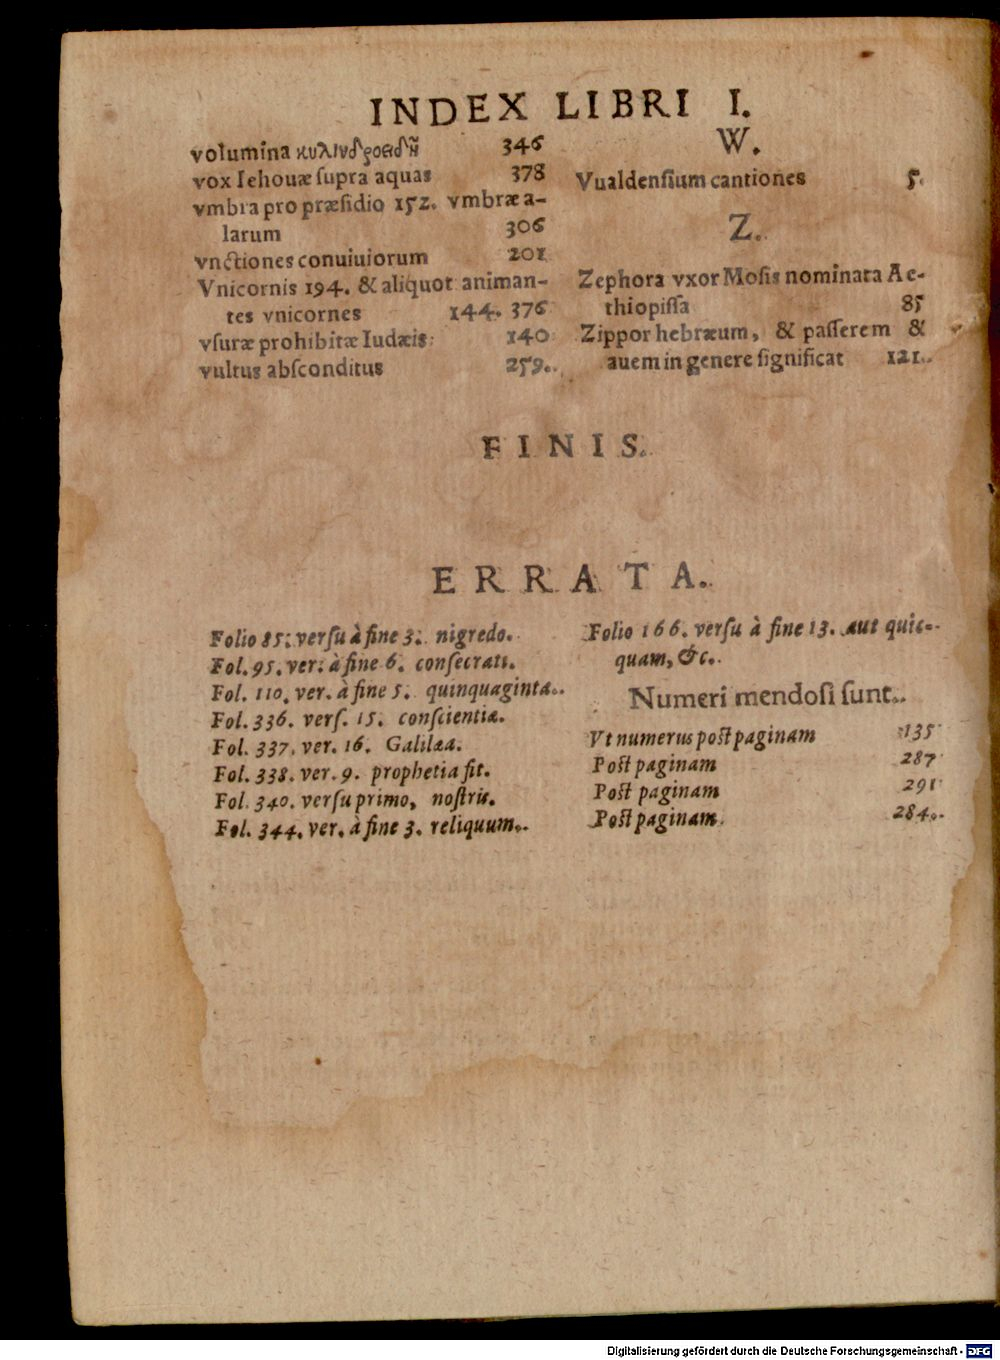 INDEX LIBRI I.
volumina κυλινδροειδῆ 346
vox Iehouæ ſupra aquas 378
vmbra pro præſidio 152. vmbræ a-
larum 306
vnctiones conuiuiorum 201
Vnicornis 194. & aliquot animan-
tes vnicornes 144. 376
vſuræ prohibitæ Iudæis 140
vultus abſconditus 259.
W.
Vualdenſium cantiones 5.
Z.
Zephora vxor Moſis nominata Ae-
thiopiſſa 85
Zippor hebræum, & paſſerem &
auem in genere ſignificat 121.
FINIS.
ERRATA.
Folio 85. verſu à fine 3. nigredo.
Fol. 95. ver. à fine 6. conſecrati.
Fol. 110. ver. à fine 5. quinquaginta.
Fol. 336. verſ. 15. conſcientiæ.
Fol. 337. ver. 16. Galilæa.
Fol. 338. ver. 9. prophetia fit.
Fol. 340. verſu primo, noſtris.
Fol. 344. ver. à fine 3. reliquum.
Folio 166. verſu à fine 13. aut quic-
quam, &c.
Numeri mendoſi ſunt.
Vt numerus poſt paginam 135
Poſt paginam 287
Poſt paginam 291
Poſt paginam 284.
Digitalisierung gefördert durch die Deutsche Forschungsgemeinschaft - DFG